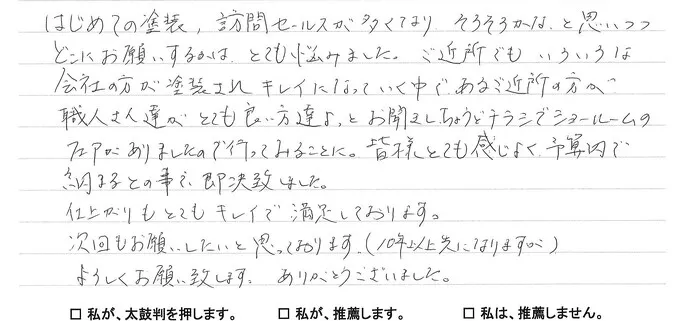 はじめての塗装，訪問セールスが多くなり，そろそろかな，と思いつつ
どこにお願いするかは，とても悩みました。ご近所でも いろいろな
会社の方が塗装され キレイになっていく中で，あるご近所の方が
職人さん達が とても良い方達よ，とお聞きし，ちょうどチラシでショールームの
フェアがありましたので行ってみることに。皆様とても感じよく，予算内で
納まるとの事で，即決致しました。
仕上がりもとてもキレイで満足しております。
次回もお願いしたいと思っております。（10年以上先になりますが）
よろしくお願い致します。 ありがとうございました。
□ 私が、太鼓判を押します。 □ 私が、推薦します。 □ 私は、推薦しません。